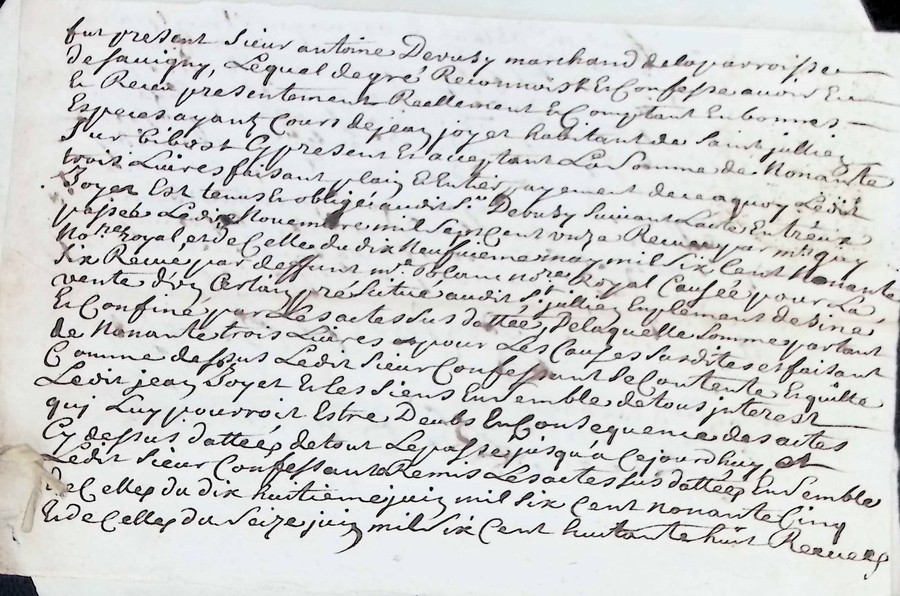 fut present Sieur antoine Devusy marchand delaparroisse
desavigny, Lequel degré Reconnoist Et Confesse avoir Eu
Et Receu presentement Reellement Et Comptant Enbonnes
Especes ayant Cours dejean joyet habitant de Saint jullien
Sur bibost Cy present Et acceptant La Somme de Nonante
trois Livres faisant plain Et Entier payement de ce aquoy Ledit
Joyet Est tenus Et obligé audit Sr Devusy Suivant Lacte Entreux
passée Le dix Novembre mil Sept Cent Unze Receu par me guy
Nore Royal, et de Celle du dix Neufvieme may mil Six Cent Nonante
Six Receue par deffunt me Nore Royal Causée pour La
vente d'un Certain pré Situé audit St jullien Enplement
Et Confiné par Les actes Sus dattée, Delaquelle Somme partant
de Nonante trois Livres et pour Les Causes Susdites et faisant
Comme dessus Ledit Sieur Confessant Se Contente Et quitte
Ledit jean Joyet Et Les Siens Ensemble de tous jnterest
qui Luy pourroit Estre Deubs En Consequence des actes
Cy dessus dattées de tout Le passé jusqu'a Cejourdhuy, et
Ledit Sieur Confessant a Remis Les actes Sus dattées Ensemble
de Celles du dix huitieme juin mil Six Cent Nonante Cinq
Et de Celles du Seize juin mil Six Cent huitante huit Receues